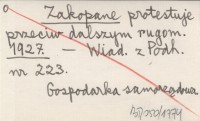 Zakopane protestuje
przeciw dalszym rugom.
1927. — Wiad. z Podh.
nr 223.
Gospodarka samorządowa